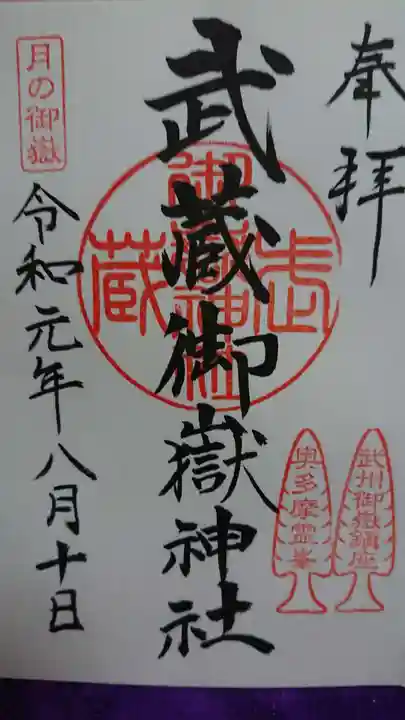 奉拝
武州御嶽鎮座
奥多摩霊峯
武蔵御嶽神社
武蔵御嶽神社
月の御嶽
令和元年八月十日